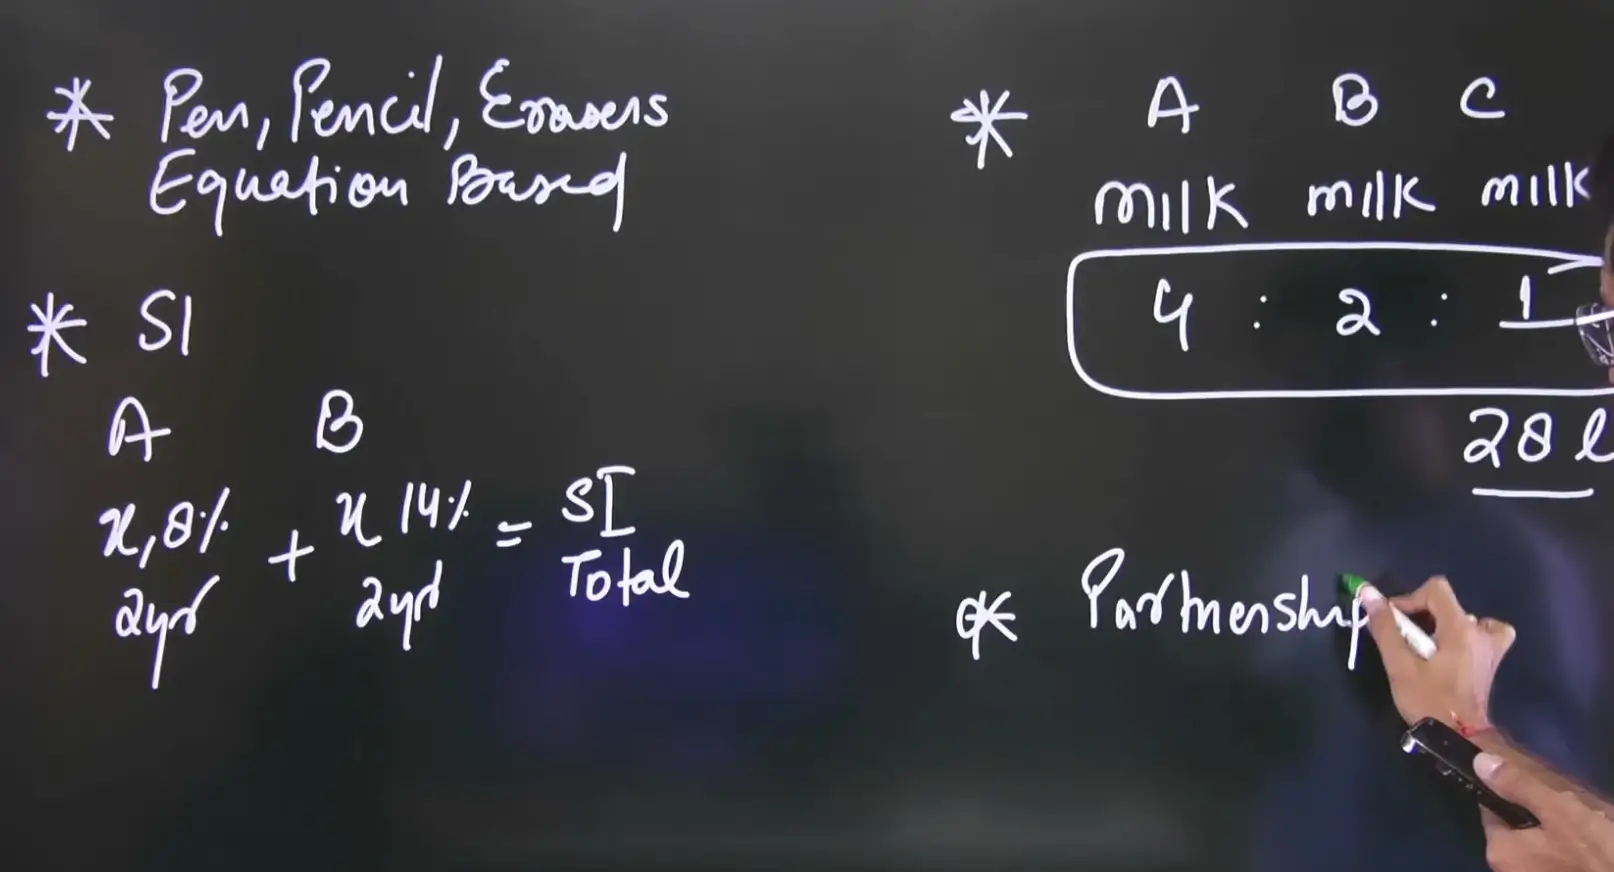 * Pen, Pencil, Erasers
Equation Based
* SI
A B
x, 8% + x 14% = SI
2yr 2yr Total
* A B C
milk milk milk
4 : 2 : 1
28 l
* Partnership